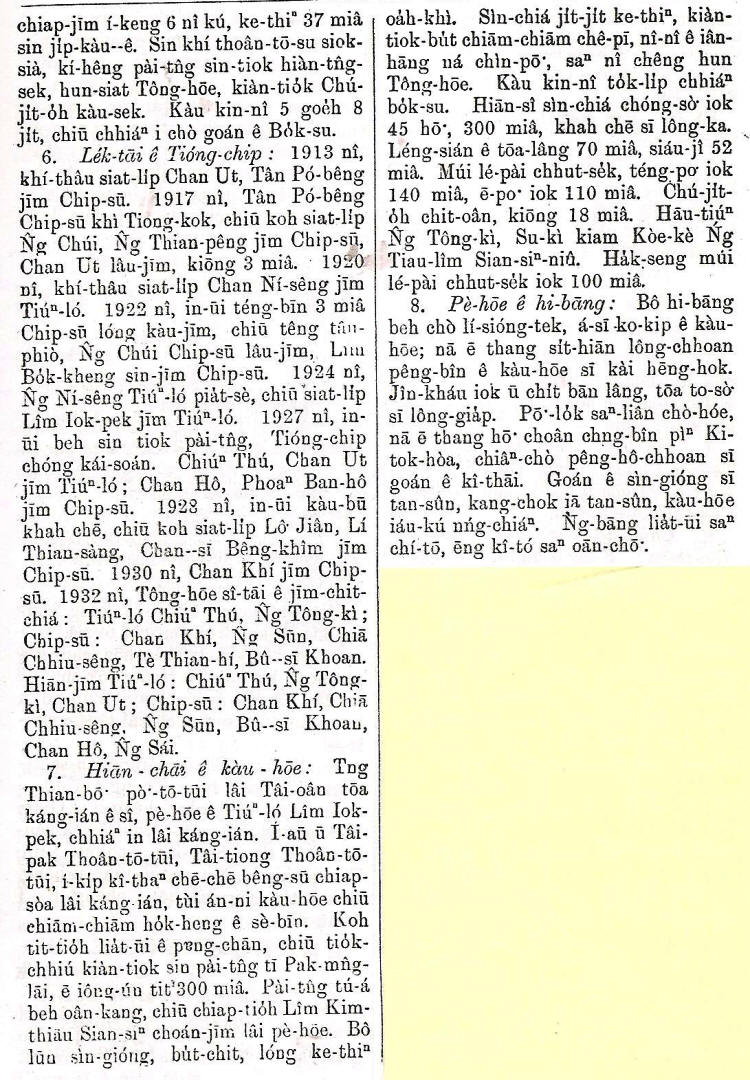 chiap-jīm í-keng 6 nî kú, ke-thiⁿ 37 miâ
sin ji̍p-kàu--ê. Sin khí thoân-tō-su siok-
sià, kí-hêng pài-tn̂g sin-tiok hiàn-tn̂g-
sek, hun-siat Tông-hōe, kiàn-tio̍k Chú-
ji̍t-o̍h kàu-sek. Kàu kin-nî 5 goe̍h 8
ji̍t, chiū chhiáⁿ i chò goán ê Bo̍k-su.
6. Le̍k-tāi ê Tióng-chip: 1913 nî,
khí-thâu siat-li̍p Chan Ut, Tân Pó-bêng
jīm Chip-sū. 1917 nî, Tân Pó-bêng
Chip-sū khì Tiong-kok, chiū koh siat-li̍p
N̂g Chúi, N̂g Thian-pêng jīm Chip-sū,
Chan Ut lâu-jīm, kiōng 3 miâ. 1920
nî, khí-thâu siat-li̍p Chan Ní-sêng jīm
Tiúⁿ-ló. 1922 nî, in-ūi téng-bīn 3 miâ
Chip-sū lóng kàu-jīm, chiū têng tâu-
phiò, N̂g Chúi Chip-sū lâu-jīm, Lîm
Bo̍k-kheng sin-jīm Chip-sū. 1924 nî,
N̂g Ní-sêng Tiúⁿ-ló pia̍t-sè, chiū siat-li̍p
Lîm Iok-pek jīm Tiúⁿ-ló. 1927 nî, in-
ūi beh sin tiok pài-tn̂g, Tióng-chip
chóng kái-soán. Chiúⁿ Thú, Chan Ut
jīm Tiúⁿ-ló; Chan Hô, Phoaⁿ Ban-hô
jīm Chip-sū. 1928 nî, in-ūi kàu-bū
khah chē, chiū koh siat-li̍p Lô͘ Jiân, Lí
Thian-sàng, Chan--sī Bêng-khîm jīm
Chip-sū. 1930 nî, Chan Khí jīm Chip-
sū. 1932 nî, Tông-hōe sî-tāi ê jīm-chit-
chiá: Tiúⁿ-ló Chiúⁿ Thú, N̂g Tông-kì;
Chip-sū: Chan Khí, N̂g Sūn, Chiā
Chhiu-sêng, Tè Thian-hí, Bû--sī Khoan.
Hiān-jīm Tiúⁿ-ló: Chiúⁿ Thú, N̂g Tông-
kì, Chan Ut; Chip-sū: Chan Khí, Chiā
Chhiu-sêng, N̂g Sūn, Bû--sī Khoan,
Chan Hô, N̂g Sái.
7. Hiān-chāi ê kàu-hōe: Tng
Thian-bō͘ pò͘-tō-tūi lâi Tâi-oân tōa
káng-ián ê sî, pè-hōe ê Tiúⁿ-ló Lîm Iok-
pek, chhiáⁿ in lâi káng-ián. Í-aū ū Tâi-
pak Thoân-tō-tūi, Tâi-tiong Thoân-tō-
tūi, í-ki̍p kî-thaⁿ chē-chē bêng-sū chiap-
sòa lâi káng-ián, tùi án-ni kàu-hōe chiū
chiām-chiām ho̍k-heng ê sè-bīn. Koh
tit-tio̍h lia̍t-ūi ê pang-chān, chiū tio̍k-
chhiú kiàn-tiok sin pài-tn̂g tī Pak-mn̂g-
lāi, ē iông-ún tit 300 miâ. Pài-tn̂g tú-á
beh oân-kang, chiū chiap-tio̍h Lîm Kim-
thiāu Sian-siⁿ choán-jīm lâi pè-hōe. Bô
lūn sìn-gióng, bu̍t-chit, lóng ke-thiⁿ
oa̍h-khì. Sìn-chiá ji̍t-ji̍t ke-thiⁿ, kiàn-
tiok-bu̍t chiām-chiām chê-pī, nî-nî ê iân-
hāng ná chìn-pō͘, saⁿ nî chêng hun
Tông-hōe. Kàu kin-nî to̍k-li̍p chhiáⁿ
bo̍k-su. Hiān-sî sìn-chiá chóng-sò͘ iok
45 hō͘, 300 miâ, khah chē sī lông-ka.
Léng-sián ê tōa-lâng 70 miâ, siáu-jî 52
miâ. Múi lé-pài chhut-se̍k, téng-po͘ iok
140 miâ, ē-po͘ iok 110 miâ. Chú-ji̍t-
o̍h chit-oân, kiōng 18 miâ. Hāu-tiúⁿ
N̂g Tông-kì, Su-kì kiam Kòe-kè N̂g
Tiau-lîm Sian-siⁿ-niû. Ha̍k-seng múi
lé-pài chhut-se̍k iok 100 miâ.
8. Pè-hōe ê hi-bāng: Bô hi-bāng
beh chò lí-sióng-tek, á-sī ko-kip ê kàu-
hōe; nā ē thang si̍t-hiān lông-chhoan
pêng-bîn ê kàu-hōe sī kài hēng-hok.
Jîn-kháu iok ū chi̍t bān lâng, tōa to-sò͘
sī lông-gia̍p. Pō͘-lo̍k saⁿ-liân chò-hóe,
nā ē thang hō͘ choân chng-bîn pìⁿ Ki-
tok-hòa, chiâⁿ-chò pêng-hô-chhoan sī
goán ê kî-thāi. Goán ê sìn-gióng sī
tan-sûn, kang-chok iā tan-sûn, kàu-hōe
iáu-kú nńg-chiáⁿ. Ǹg-bāng lia̍t-ūi saⁿ
chí-tō, ēng kî-tó saⁿ oān-chō͘.